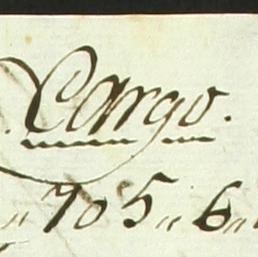 Cargo.
" 705 " 6 "